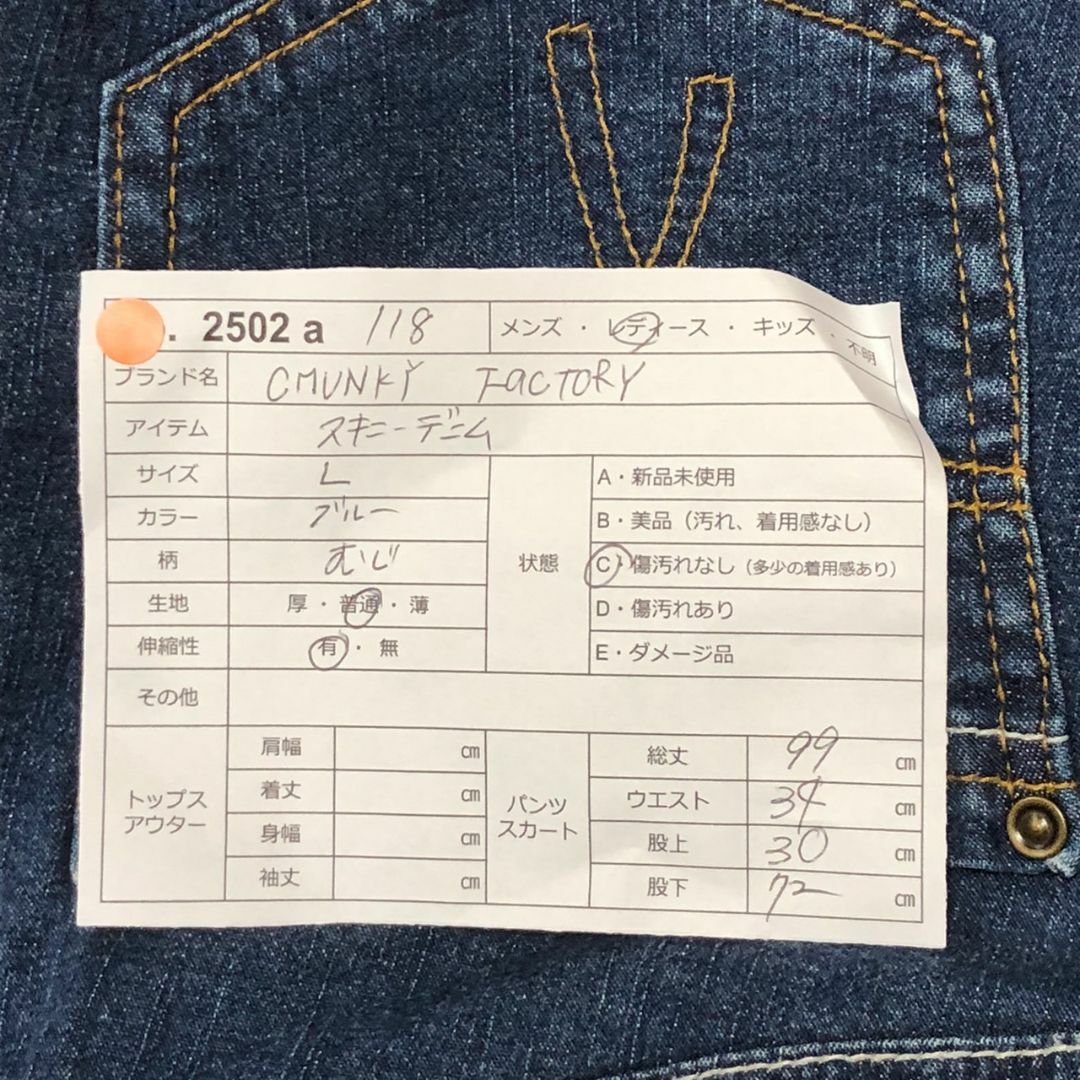 . 2502 a 118 メンズ ・ レディース ・ キッズ ・ 不明
ブランド名 CMUNKY FACTORY
アイテム スキニーデニム
サイズ L
カラー ブルー
柄 むじ
生地 厚・普通・薄
伸縮性 有・無
状態
A・新品未使用
B・美品（汚れ、着用感なし）
C・傷汚れなし（多少の着用感あり）
D・傷汚れあり
E・ダメージ品
その他
トップス
アウター
肩幅 cm
着丈 cm
身幅 cm
袖丈 cm
パンツ
スカート
総丈 99 cm
ウエスト 34 cm
股上 30 cm
股下 72 cm